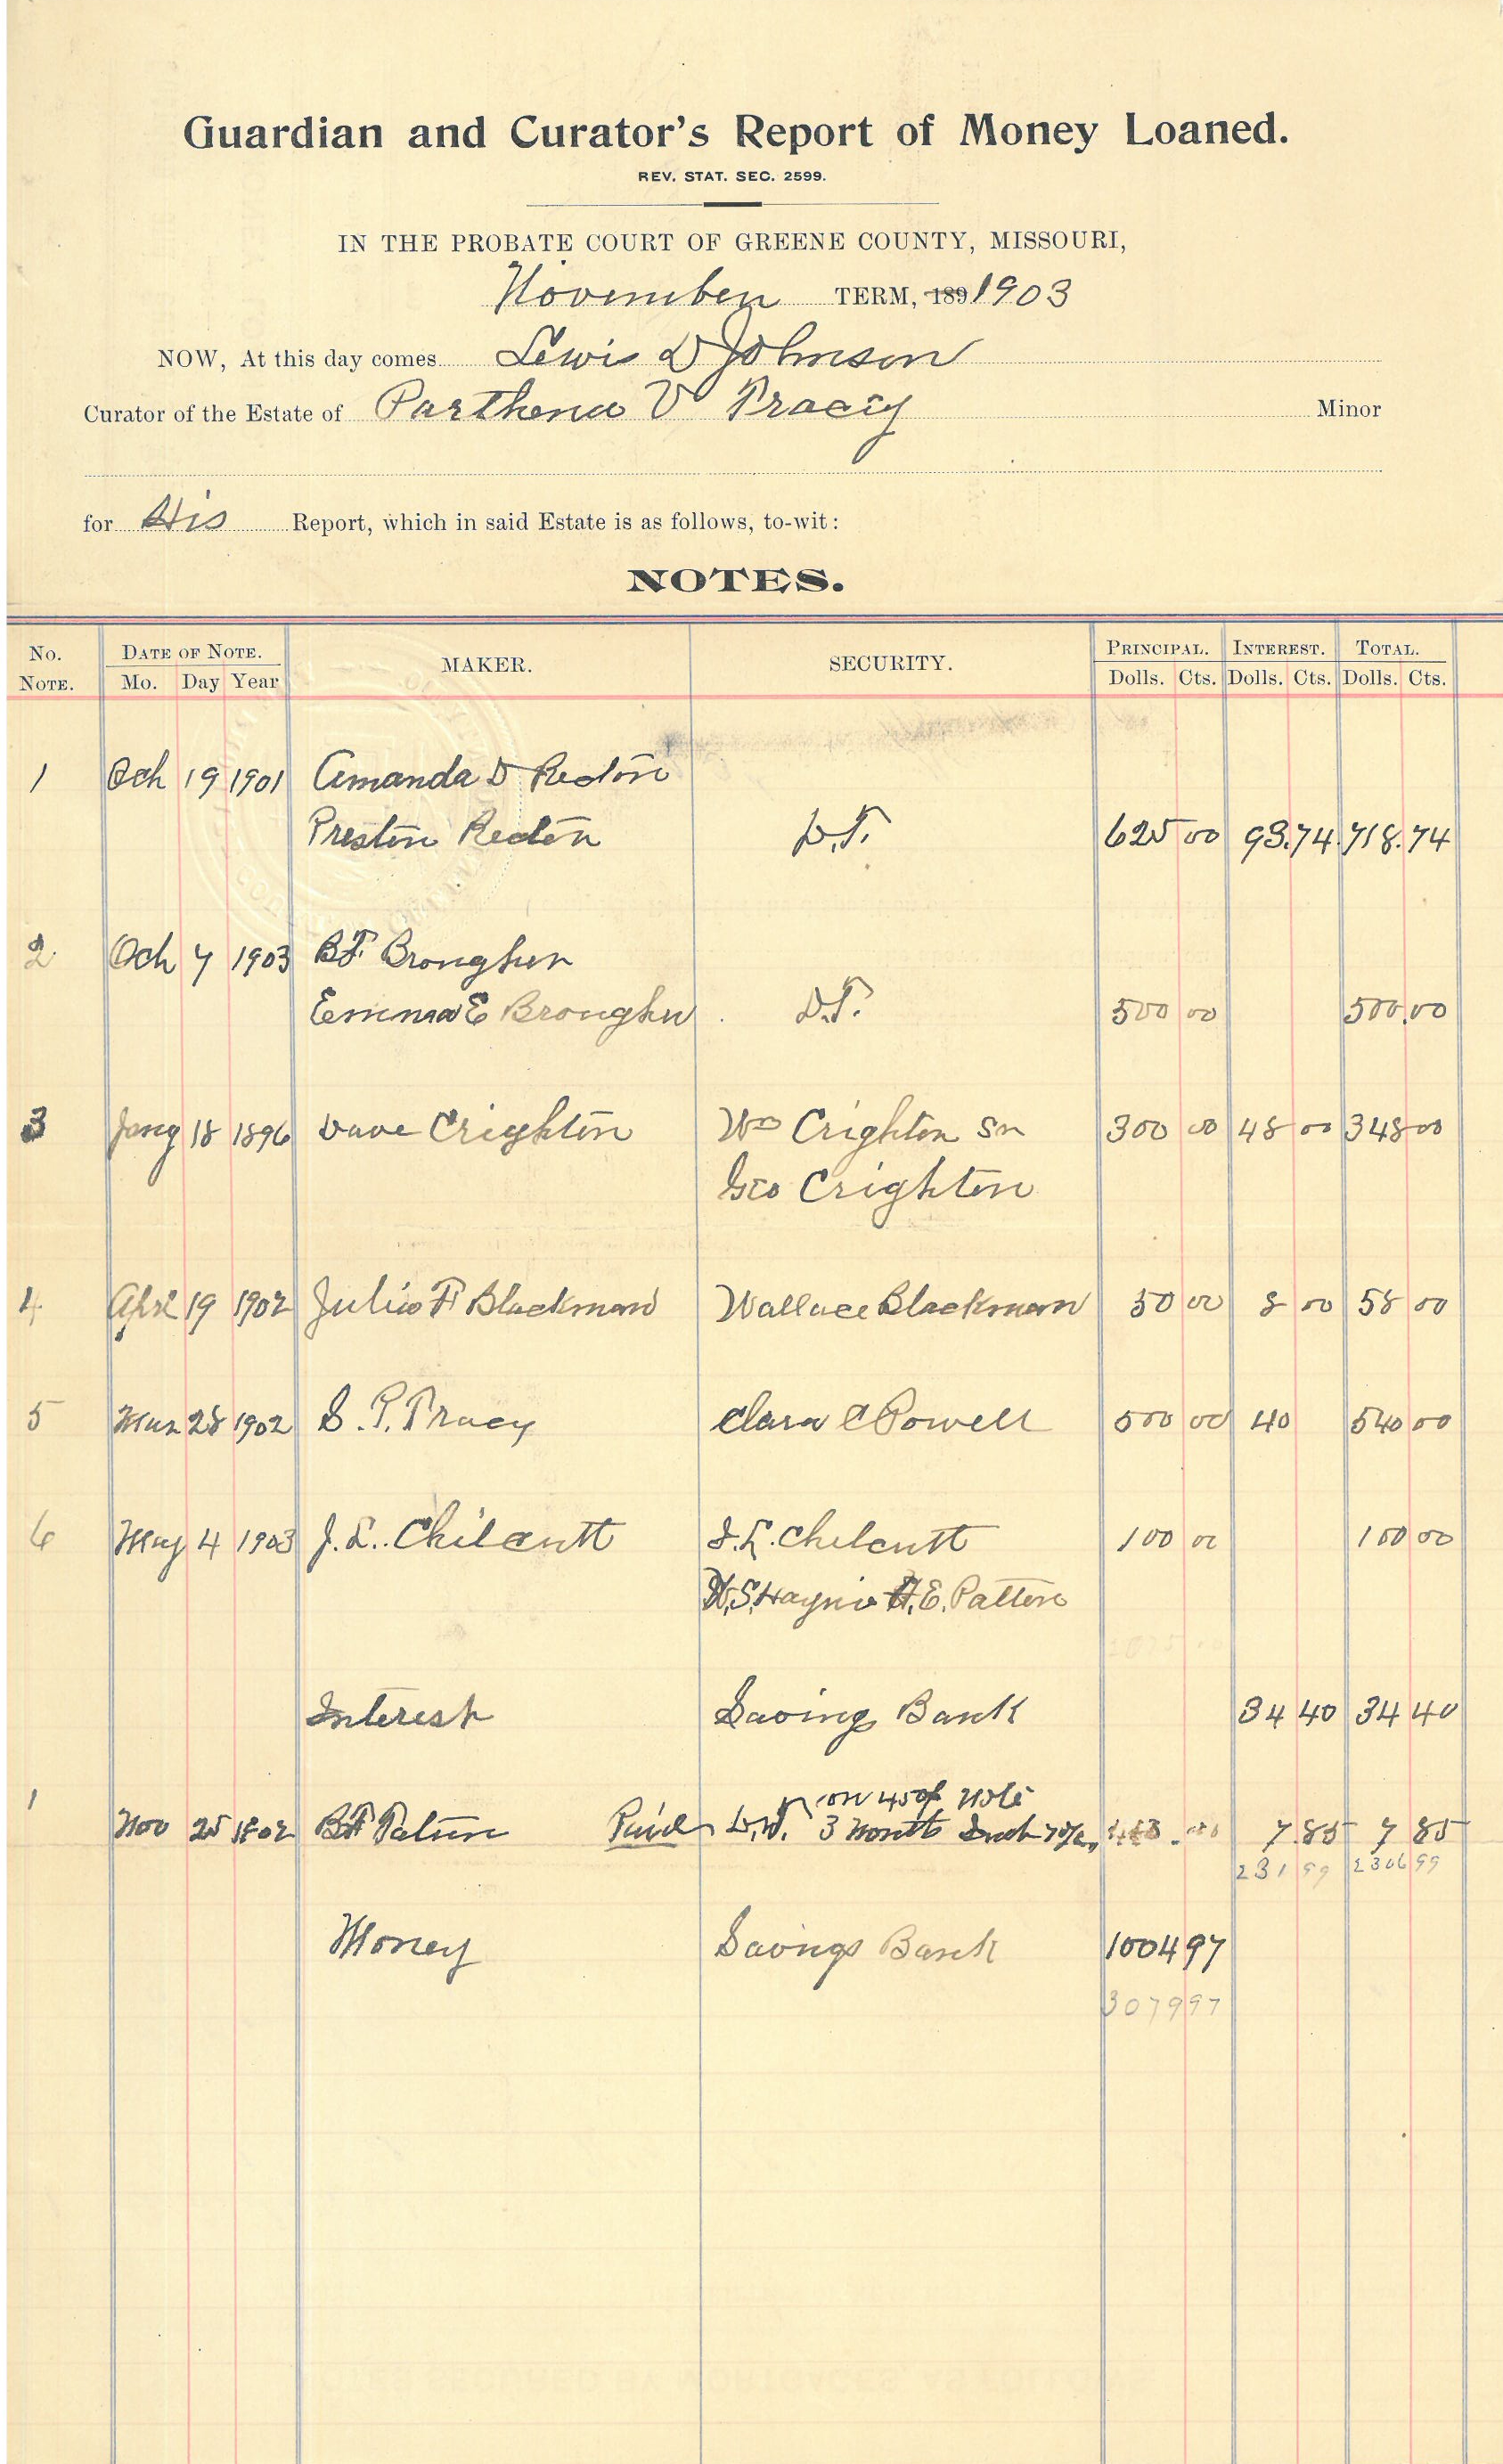 Guardian and Curator's Report of Money Loaned.
REV. STAT. SEC. 2599.
IN THE PROBATE COURT OF GREENE COUNTY, MISSOURI,
November TERM, 189 1903
NOW, At this day comes Lewis D Johnson
Curator of the Estate of Parthena V Tracy Minor
for His Report, which in said Estate is as follows, to-wit:
NOTES.
No. NOTE. DATE OF NOTE. Mo. Day Year MAKER. SECURITY. PRINCIPAL. Dolls. Cts. INTEREST. Dolls. Cts. TOTAL. Dolls. Cts.
1 Och 19 1901 Amanda D Redon
Preston Redon D.T. 625 00 93.74 718.74
2 Och 7 1903 B.F. Brougher
Emma E Brougher D.T. 500 00 500.00
3 Jany 18 1896 Dave Crighton Wm Crighton Sr 300 00 48 00 348 00
Geo Crighton
4 Aprl 19 1902 Julia F Blackman Wallace Blackman 50 00 8 00 58 00
5 Mar 28 1902 S. P. Tracy Clara C Powell 500 00 40 540 00
6 May 4 1903 J. L. Chilcutt J. L. Chilcutt 100 00 100 00
W.S. Haynie H.E. Patton
Interest Savings Bank 34 40 34 40
1 on 450 Note
Nov 25 1802 Paid 3 Month 7%, 7 85 7 85
231 99 2306 99
Money Savings Bank 1004 97
3079 97